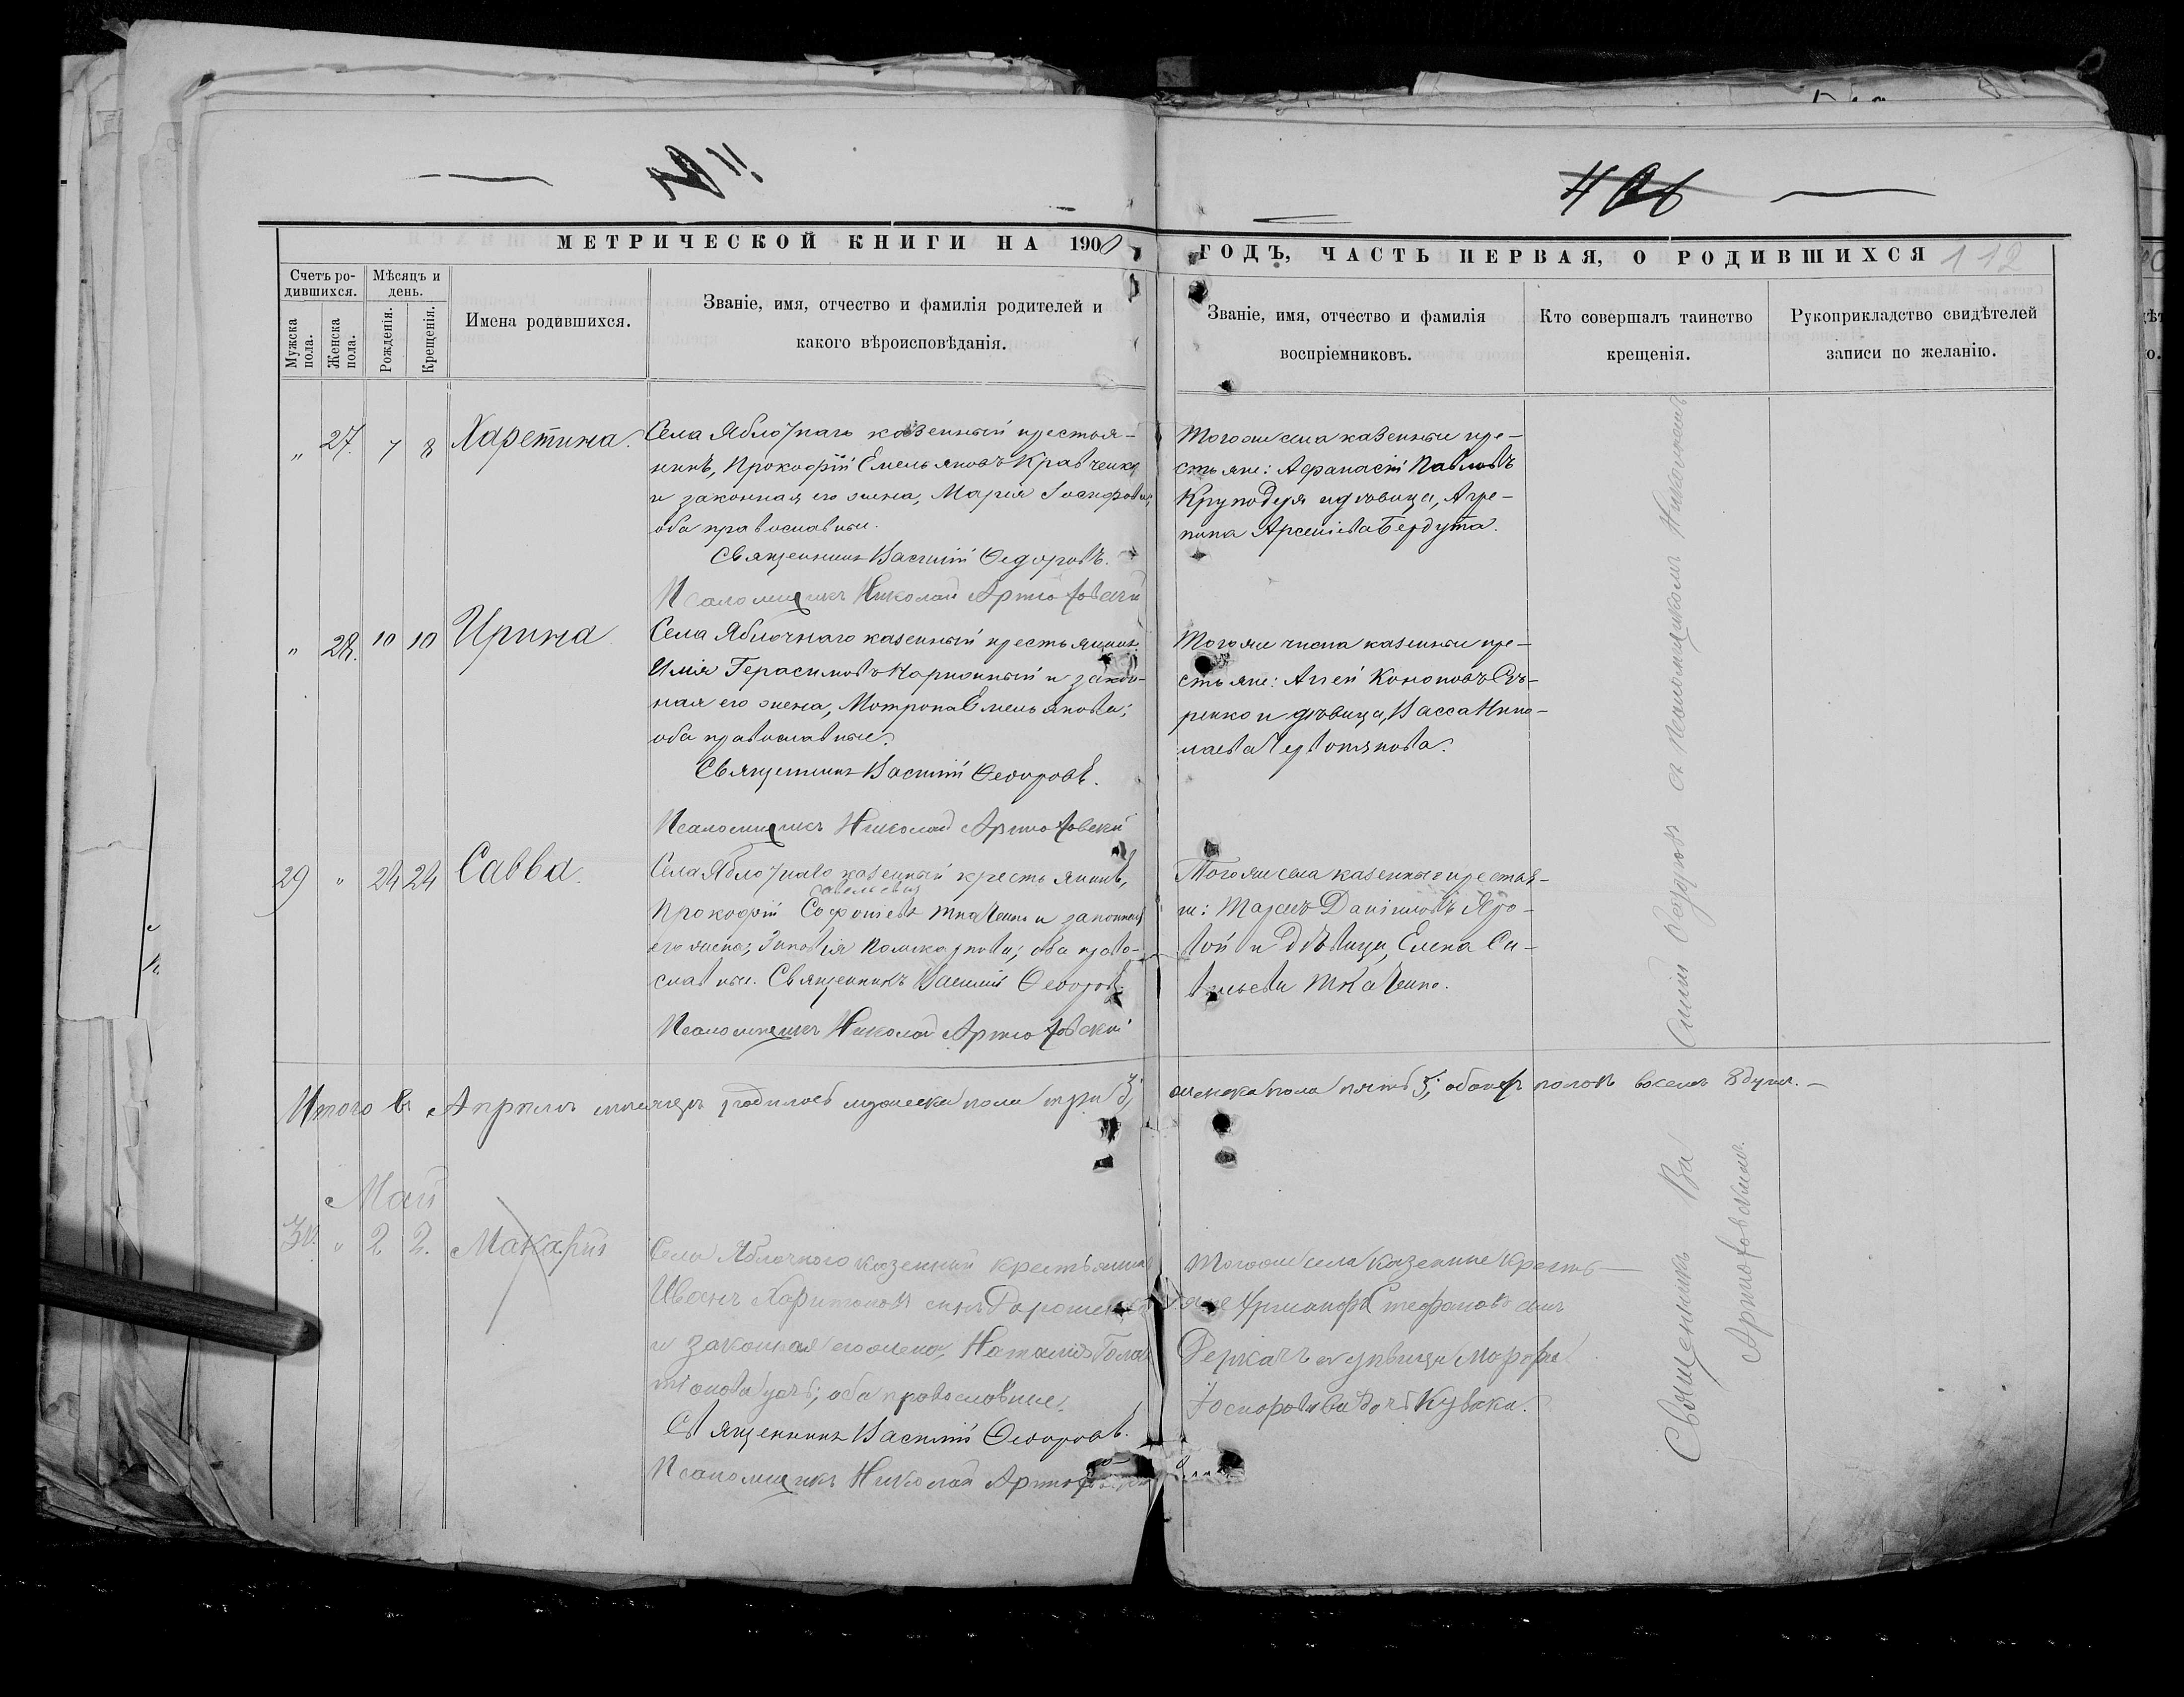 МЕТРИЧЕСКОЙ КНИГИ НА 1900
ГОДЪ, ЧАСТЬ ПЕРВАЯ, О РОДИВШИХСЯ 112
Счетъ ро-
дившихся.
Мѣсяцъ и
день.
Мужска
пола.
Женска
пола.
Рожденія.
Крещенія.
Имена родившихся.
Званіе, имя, отчество и фамилія родителей и
какого вѣроисповѣданія.
Званіе, имя, отчество и фамилія
воспріемниковъ.
Кто совершалъ таинство
крещенія.
Рукоприкладство свидѣтелей
записи по желанію.
„ 27. 7 8 Харетина.
Села Яблочнаго казенный крестья-
нинъ, Прокофій Емельяновъ Кравченко
и законная его жена, Марія Іосифова;
оба православные.
Священникъ Василій Ѳедоровъ.
Псаломщикъ Николай
Тогоже села казенные кре-
стьяне: Афанасій Павловъ
Круподеря и дѣвица, Агре-
пина Арсеніева Бердута.
„ 28. 10 10 Ирина
Села Яблочнаго казенный крестьянинъ
Илія Герасимовъ и закон-
ная его жена, Мотрона Емельянова;
оба православные.
Священникъ Василій Ѳеодоровъ.
Псаломщикъ Николай
Тогоже числа казенные кре-
стьяне: Кононовъ Сѣ-
ренко и дѣвица, Васса Нико-
лаева
29 „ 24 24 Савва.
Села Яблочнаго казенный крестьянинъ,
Савельевъ
Прокофій Ткаченко и законная
его жена, Зиновія Поликарпова; оба право-
славные. Священникъ Василій Ѳеодоровъ.
Псаломщикъ Николай
Тогоже села казенные крестья-
не: Даніиловъ Яро-
вой и дѣвица, Елена Са-
вельева Ткаченко.
Итого въ Апрѣлѣ мѣсяцѣ родилось мужеска пола три 3;
женска пола пять 5; обоего пола восемь 8 душъ. –
Май
30. „ 2 2. Макарій
Села Яблочного казенный крестьянинъ
Иванъ Харитоновъ сынъ Дорошенко
и законная его жена, Наталія
дочь; оба православные.
Священникъ Василій Ѳеодоровъ.
Псаломщикъ Николай
Тогоже села казенные кресть-
яне Стефановъ сынъ
Деркачъ и дѣвица
дочь
Священникъ Ва
силій Ѳеодоровъ съ псаломщикомъ Николаемъ